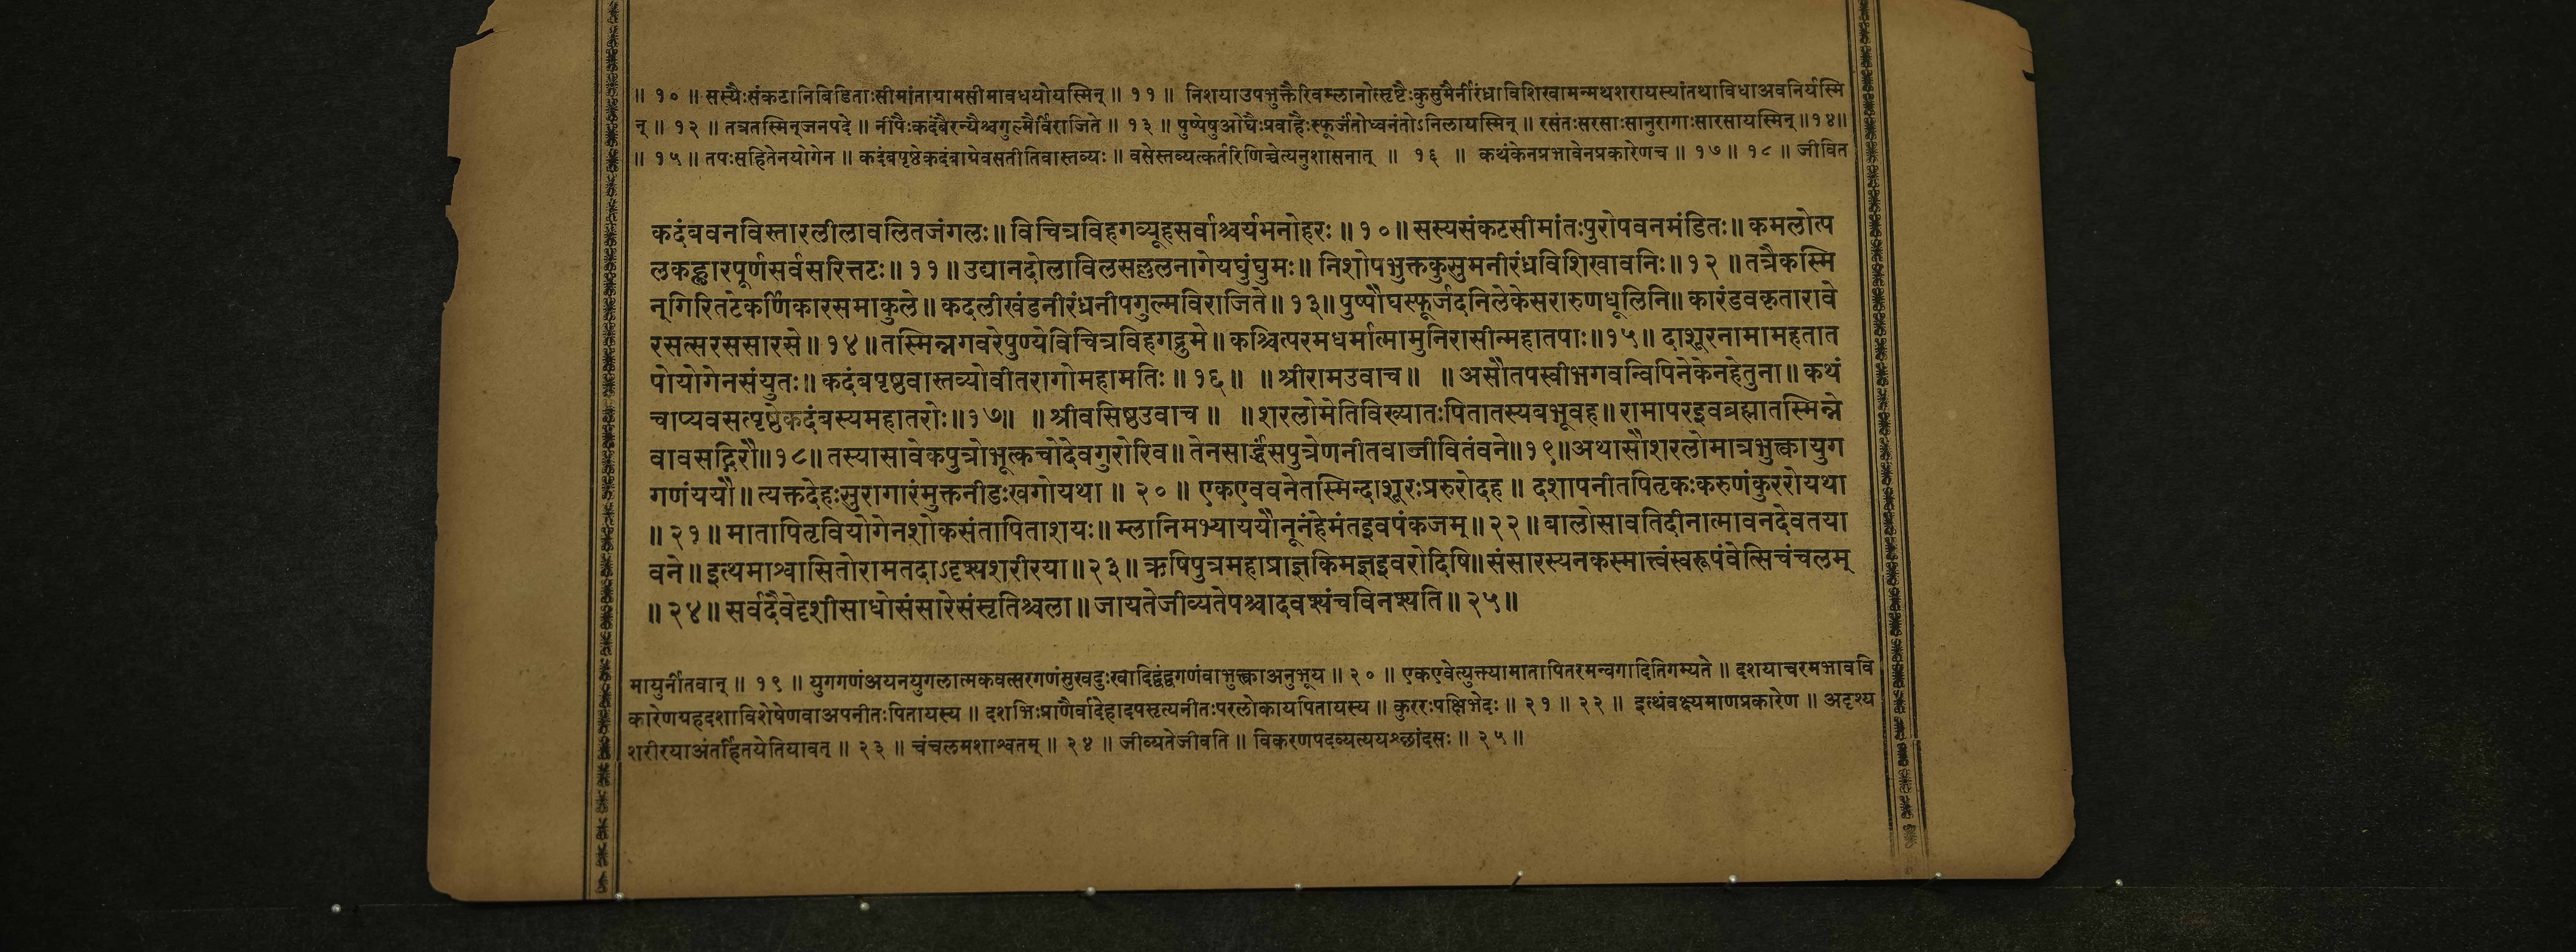 ॥ १० ॥ सस्यैःसंकटानिबिडिताःसीमांतायामसीमावधयोयस्मिन् ॥ ११ ॥ निशयाउपभुक्तैरिवम्लानोत्सृष्टैःकुसुमैर्नीरंध्राविशिखामन्मथशरायस्यांतथाविधाअवनिर्यस्मि
न् ॥ १२ ॥ तत्रतस्मिन्जनपदे ॥ नीपैःकदंबैरन्यैश्चगुल्मैर्विराजिते ॥ १३ ॥ पुष्पेषुओघैःप्रवाहैःस्फूर्जंतोध्वनंतोऽनिलायस्मिन् ॥ रसंतःसरसाःसानुरागाःसारसायस्मिन् ॥१४॥
॥ १५ ॥ तपःसहितेनयोगेन ॥ कदंबपृष्ठेकदंबाग्रेवसतीतिवास्तव्यः ॥ वसेस्तव्यत्कर्तरिणिच्चेत्यनुशासनात् ॥ १६ ॥ कथंकेनप्रभावेनप्रकारेणच ॥ १७ ॥ १८ ॥ जीवित
कदंबवनविस्तारलीलावलितजंगलः ॥ विचित्रविहगव्यूहसर्वाश्चर्यमनोहरः ॥ १० ॥ सस्यसंकटसीमांतःपुरोपवनमंडितः ॥ कमलोत्प
लकह्लारपूर्णसर्वसरित्तटः ॥ ११ ॥ उद्यानदोलाविलसल्ललनागेयघुंघुमः ॥ निशोपभुक्तकुसुमनीरंध्रविशिखावनिः ॥ १२ ॥ तत्रैकस्मि
न्गिरितटेकर्णिकारसमाकुले ॥ कदलीखंडनीरंध्रनीपगुल्मविराजिते ॥ १३ ॥ पुष्पौघस्फूर्जदनिलेकेसरारुणधूलिनि ॥ कारंडवकृतारावे
रसत्सरससारसे ॥ १४ ॥ तस्मिन्नगवरेपुण्येविचित्रविहगद्रुमे ॥ कश्चित्परमधर्मात्मामुनिरासीन्महातपाः ॥१५॥ दाशूरनामामहतात
पोयोगेनसंयुतः ॥ कदंबपृष्ठवास्तव्योवीतरागोमहामतिः ॥ १६ ॥ ॥ श्रीरामउवाच ॥ ॥ असौतपस्वीभगवन्विपिनेकेनहेतुना ॥ कथं
चाप्यवसत्पृष्ठेकदंबस्यमहातरोः ॥१७॥ ॥ श्रीवसिष्ठउवाच ॥ ॥ शरलोमेतिविख्यातःपितातस्यबभूवह ॥ रामापरइवब्रह्मातस्मिन्ने
वावसद्गिरौ ॥१८॥ तस्यासावेकपुत्रोभूत्कचोदेवगुरोरिव ॥ तेनसार्द्धंसपुत्रेणनीतवाञ्जीवितंवने ॥१९॥ अथासौशरलोमात्रभुक्त्वायुग
गणंययौ ॥ त्यक्तदेहःसुरागारंमुक्तनीडःखगोयथा ॥ २० ॥ एकएववनेतस्मिन्दाशूरःप्ररुरोदह ॥ दशापनीतपितृकःकरुणंकुररोयथा
॥ २१ ॥ मातापितृवियोगेनशोकसंतापिताशयः ॥ म्लानिमभ्याययौनूनंहेमंतइवपंकजम् ॥ २२ ॥ बालोसावतिदीनात्मावनदेवतया
वने ॥ इत्थमाश्वासितोरामतदाऽदृश्यशरीरया ॥ २३ ॥ ऋषिपुत्रमहाप्राज्ञकिमज्ञइवरोदिषि ॥ संसारस्यनकस्मात्त्वंस्वरूपंवेत्सिचंचलम्
॥ २४ ॥ सर्वदैवेदृशीसाधोसंसारेसंसृतिश्चला ॥ जायतेजीव्यतेपश्चादवश्यंचविनश्यति ॥ २५ ॥
मायुर्नीतवान् ॥ १९ ॥ युगगणंअयनयुगलात्मकवत्सरगणंसुखदुःखादिद्वंद्वगणंवाभुक्त्वाअनुभूय ॥ २० ॥ एकएवेत्युक्त्यामातापितरमन्वगादितिगम्यते ॥ दशयाचरमभाववि
कारेणग्रहदशाविशेषेणवाअपनीतःपितायस्य ॥ दशभिःप्राणैर्वादेहादपसृत्यनीतःपरलोकायपितायस्य ॥ कुररःपक्षिभेदः ॥ २१ ॥ २२ ॥ इत्थंवक्ष्यमाणप्रकारेण ॥ अदृश्य
शरीरयाअंतर्हितयेतियावत् ॥ २३ ॥ चंचलमशाश्वतम् ॥ २४ ॥ जीव्यतेजीवति ॥ विकरणपदव्यत्ययश्छांदसः ॥ २५ ॥